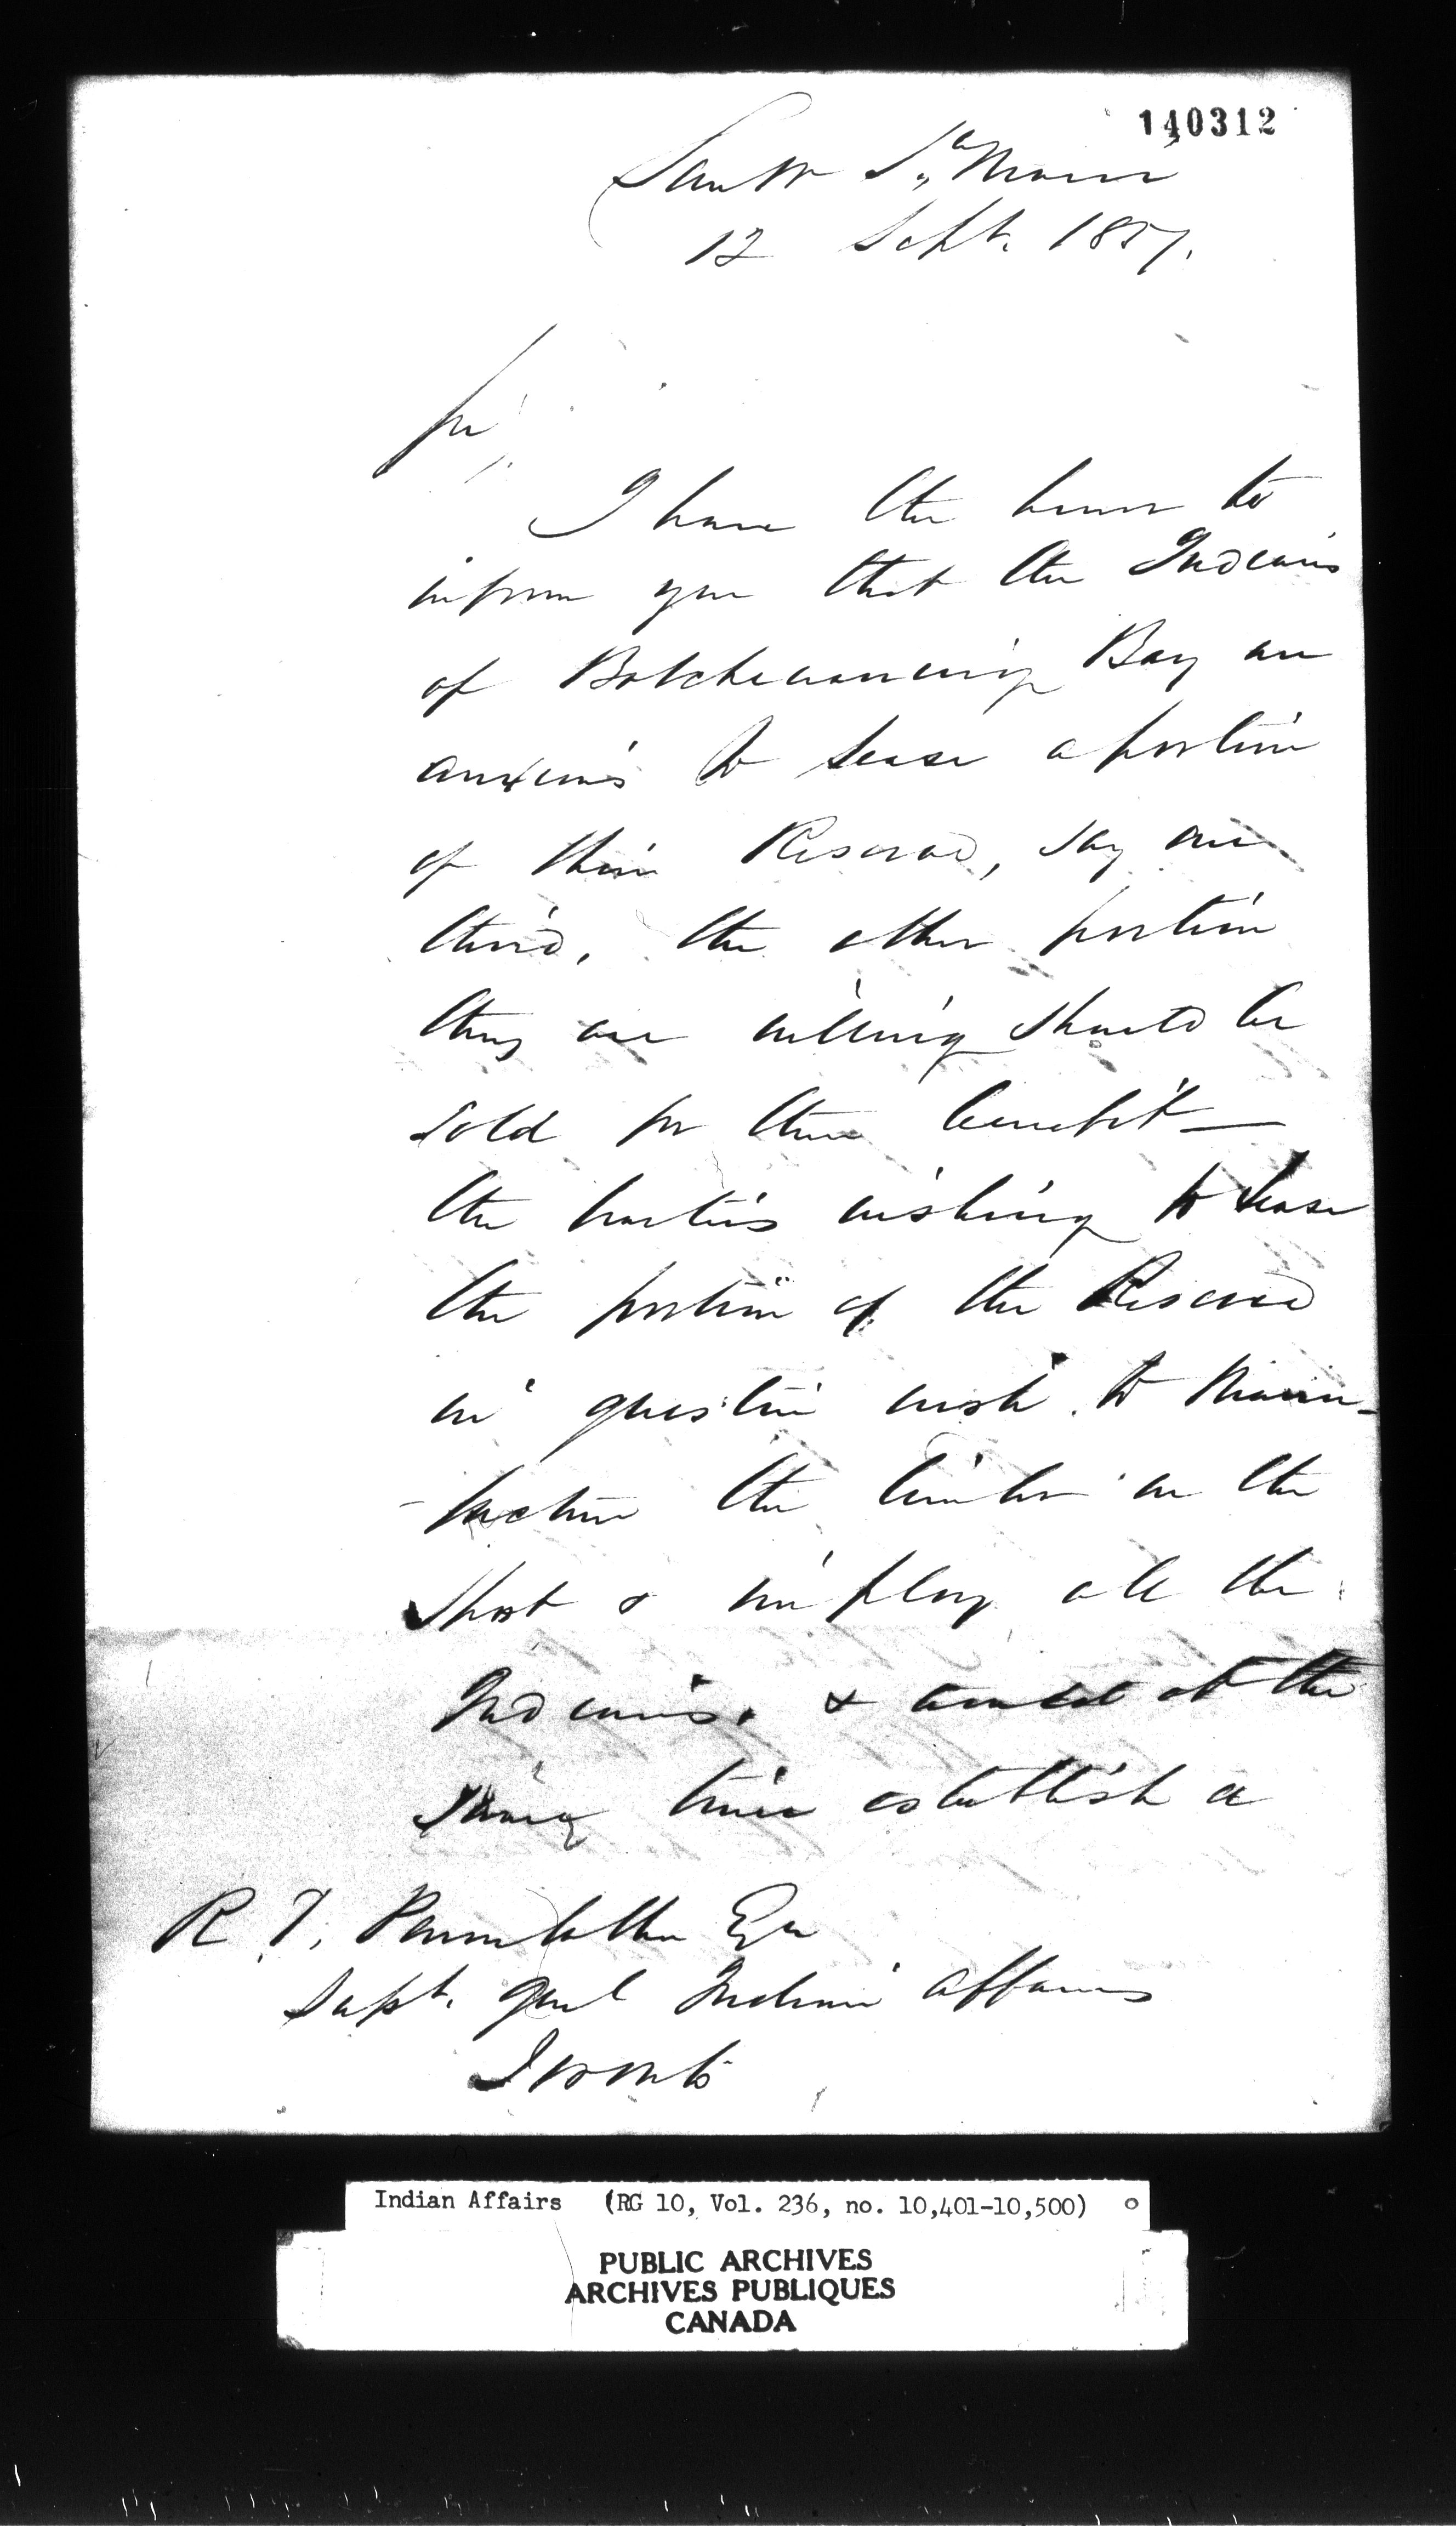 140312
Sault Ste Marie
12 Sept. 1857.
Sir,
I have the honor to
inform you that the Indians
of Batchewanaing Bay are
anxious to lease a portion
of their Reserve, say one
third, the other portion
they are willing should be
sold for their benefit —
the parties wishing to lease
the portion of the Reserve
in question wish to Manu-
-facture the timber on the
spot & employ all the
Indians. & at the
same time establish a
R. T. Pennefather Esqr
Supt. Genl Indian Affairs
Toronto
Indian Affairs (RG 10, Vol. 236, no. 10,401-10,500)
PUBLIC ARCHIVES
ARCHIVES PUBLIQUES
CANADA